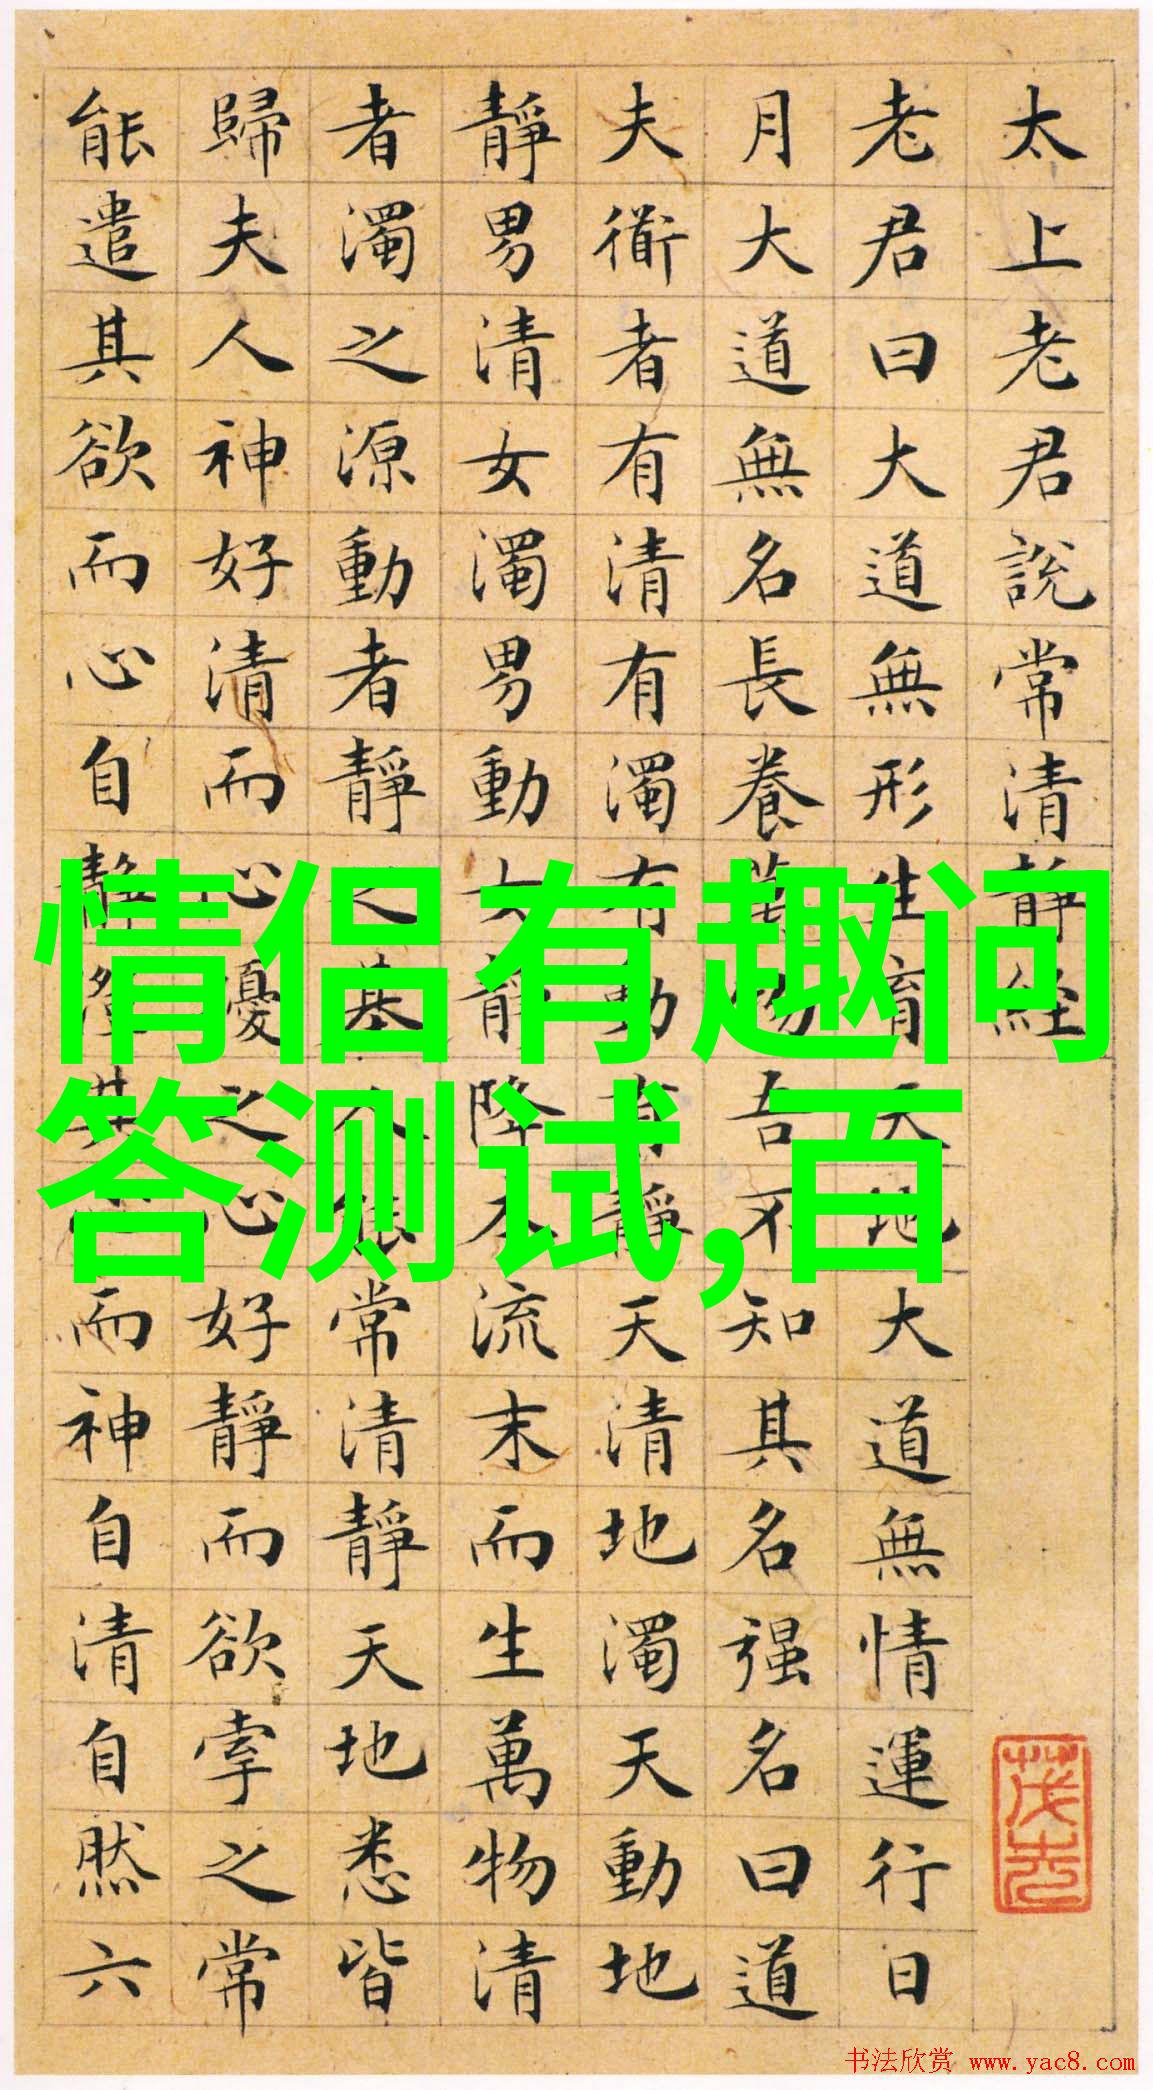 太上老君說常清靜経
老君曰大道無形生育天地大道無情運行日
月大道無名長養萬物吾不知其名强名曰道
夫衜者有清有濁有動有靜天清地濁天動地
靜男清女濁男動女靜降本流末而生萬物清
者濁之源動者靜之基人能常清靜天地悉皆
歸夫人神好清而心擾之心好靜而欲牽之常
能遣其欲而心自靜澄其心而神自清自然六
情侣有趣问
答测试,百
书法欣赏 www.yac8.com